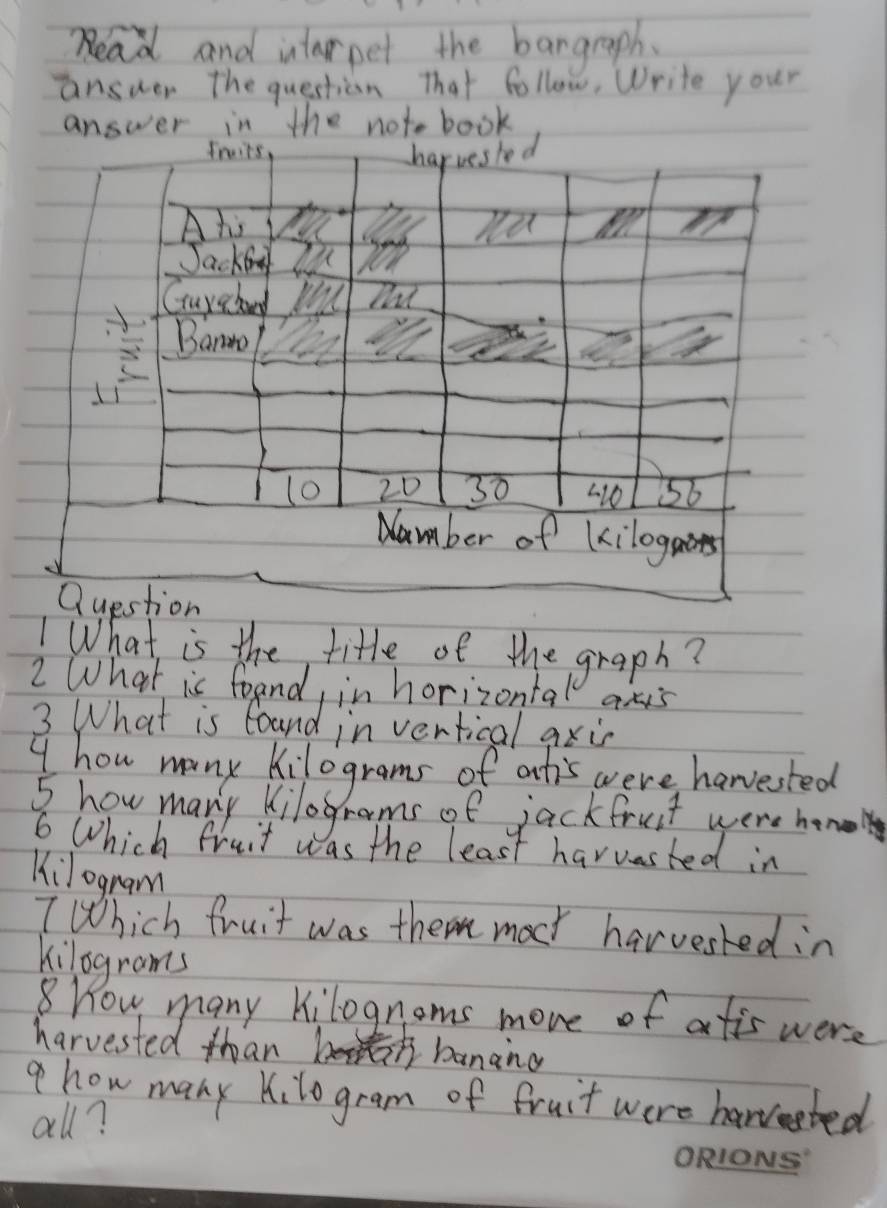 Read and interpet the bargraph.
answer The question That follow, Write your
answer in the note book,
fruits, harvested
Atis
Jackfruit
Guyabano
Banana
Fruit
10 20 30 40 50
Number of Kilograms
Question
1 What is the title of the graph?
2 What is foand, in horizontal axis
3 What is found in vertical axis
4 how many Kilograms of atis were harvested
5 how many Kilograms of jackfruit were
6 Which fruit was the least harvested in
Kilogram
7 Which fruit was the most harvested in
Kilograms
8 How many Kilograms more of atis were
harvested than banana
9 how many Kilogram of fruit were harvested
all?
ORIONS